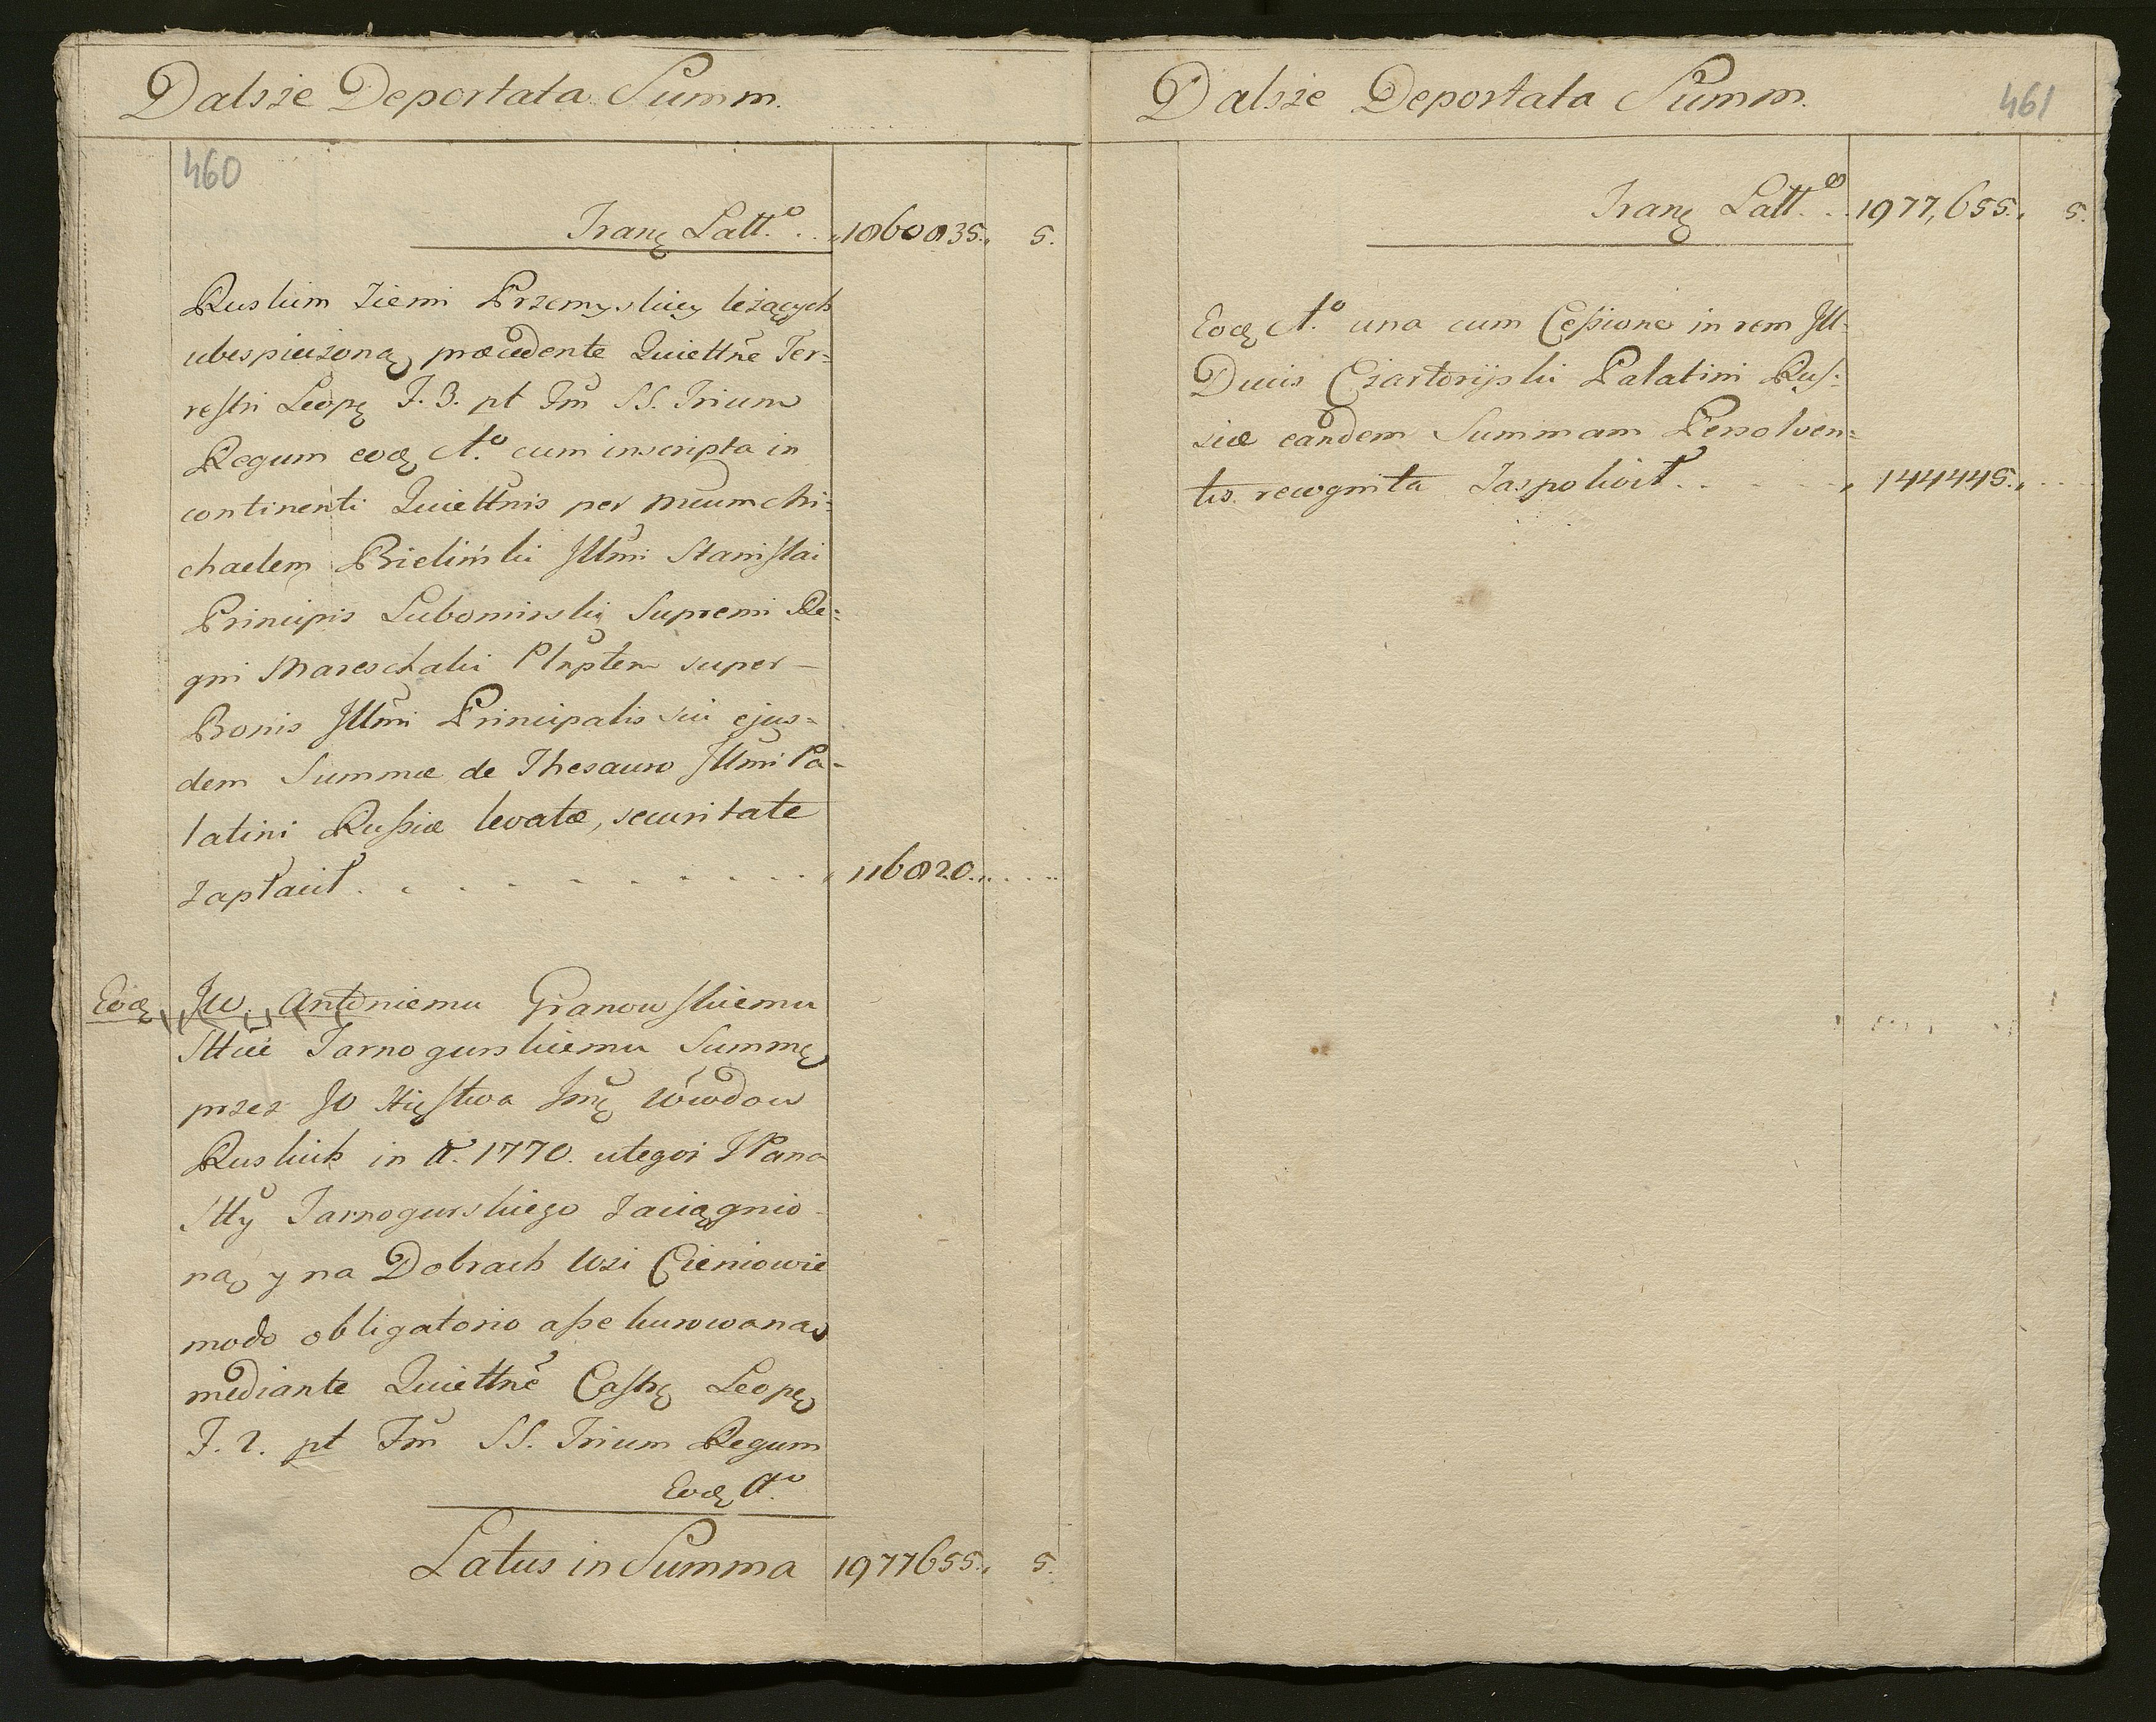 Dalsze Deportata Summ.
460
Tranę Latt.º . . „1860835„ 5.
Ruskim Ziemi Przemyskiey leżących
ubespieczoną præcedente Quiettñe Ter=
restri Leopę F. 3. pt Fm̃ SS. Trium
Regum eođ A.º cum inscripta in
continenti Quiettñis per Mcum Mi=
chaelem Bieliński Illm̃i Stanislai
Principis Lubomirski Supremi Re=
gni Mareschalci Plñptem super
Bonis Illm̃i Principalis sui ejus=
dem Summæ de Thesauro Illm̃i Pa-
latini Russiæ levatæ, securitate
zapłacił . . . . . . . . . . „ 116820„ . . .
Eođ JW. Antoniemu Granowskiemu
Sttcie Tarnogurskiemu Summę
przez JO Xięstwa Jm̃ę Wwdow
Ruskich in Aº. 1770. u tegoż JPana
Stty Tarnogurskiego zaciągnio-
ną y na Dobrach Wsi Cieniowie
modo obligatorio assekurowaną
mediante Quiettñe Castrę Leopę
F. 2. pt Fm̃ SS. Trium Regum
Eođ Aº.
Latus in Summa 1977655„ 5.
Dalsze Deportata Summ.
461
Tranę Latt.º . . 1977,655„ 5.
Eođ A.º una cum Cessione in rem Ill-
Ducis Czartoryski Palatini Rus=
siæ eandem Summam Persolven=
tis recognita Zaspokoił . . . . „ 144445„ . .